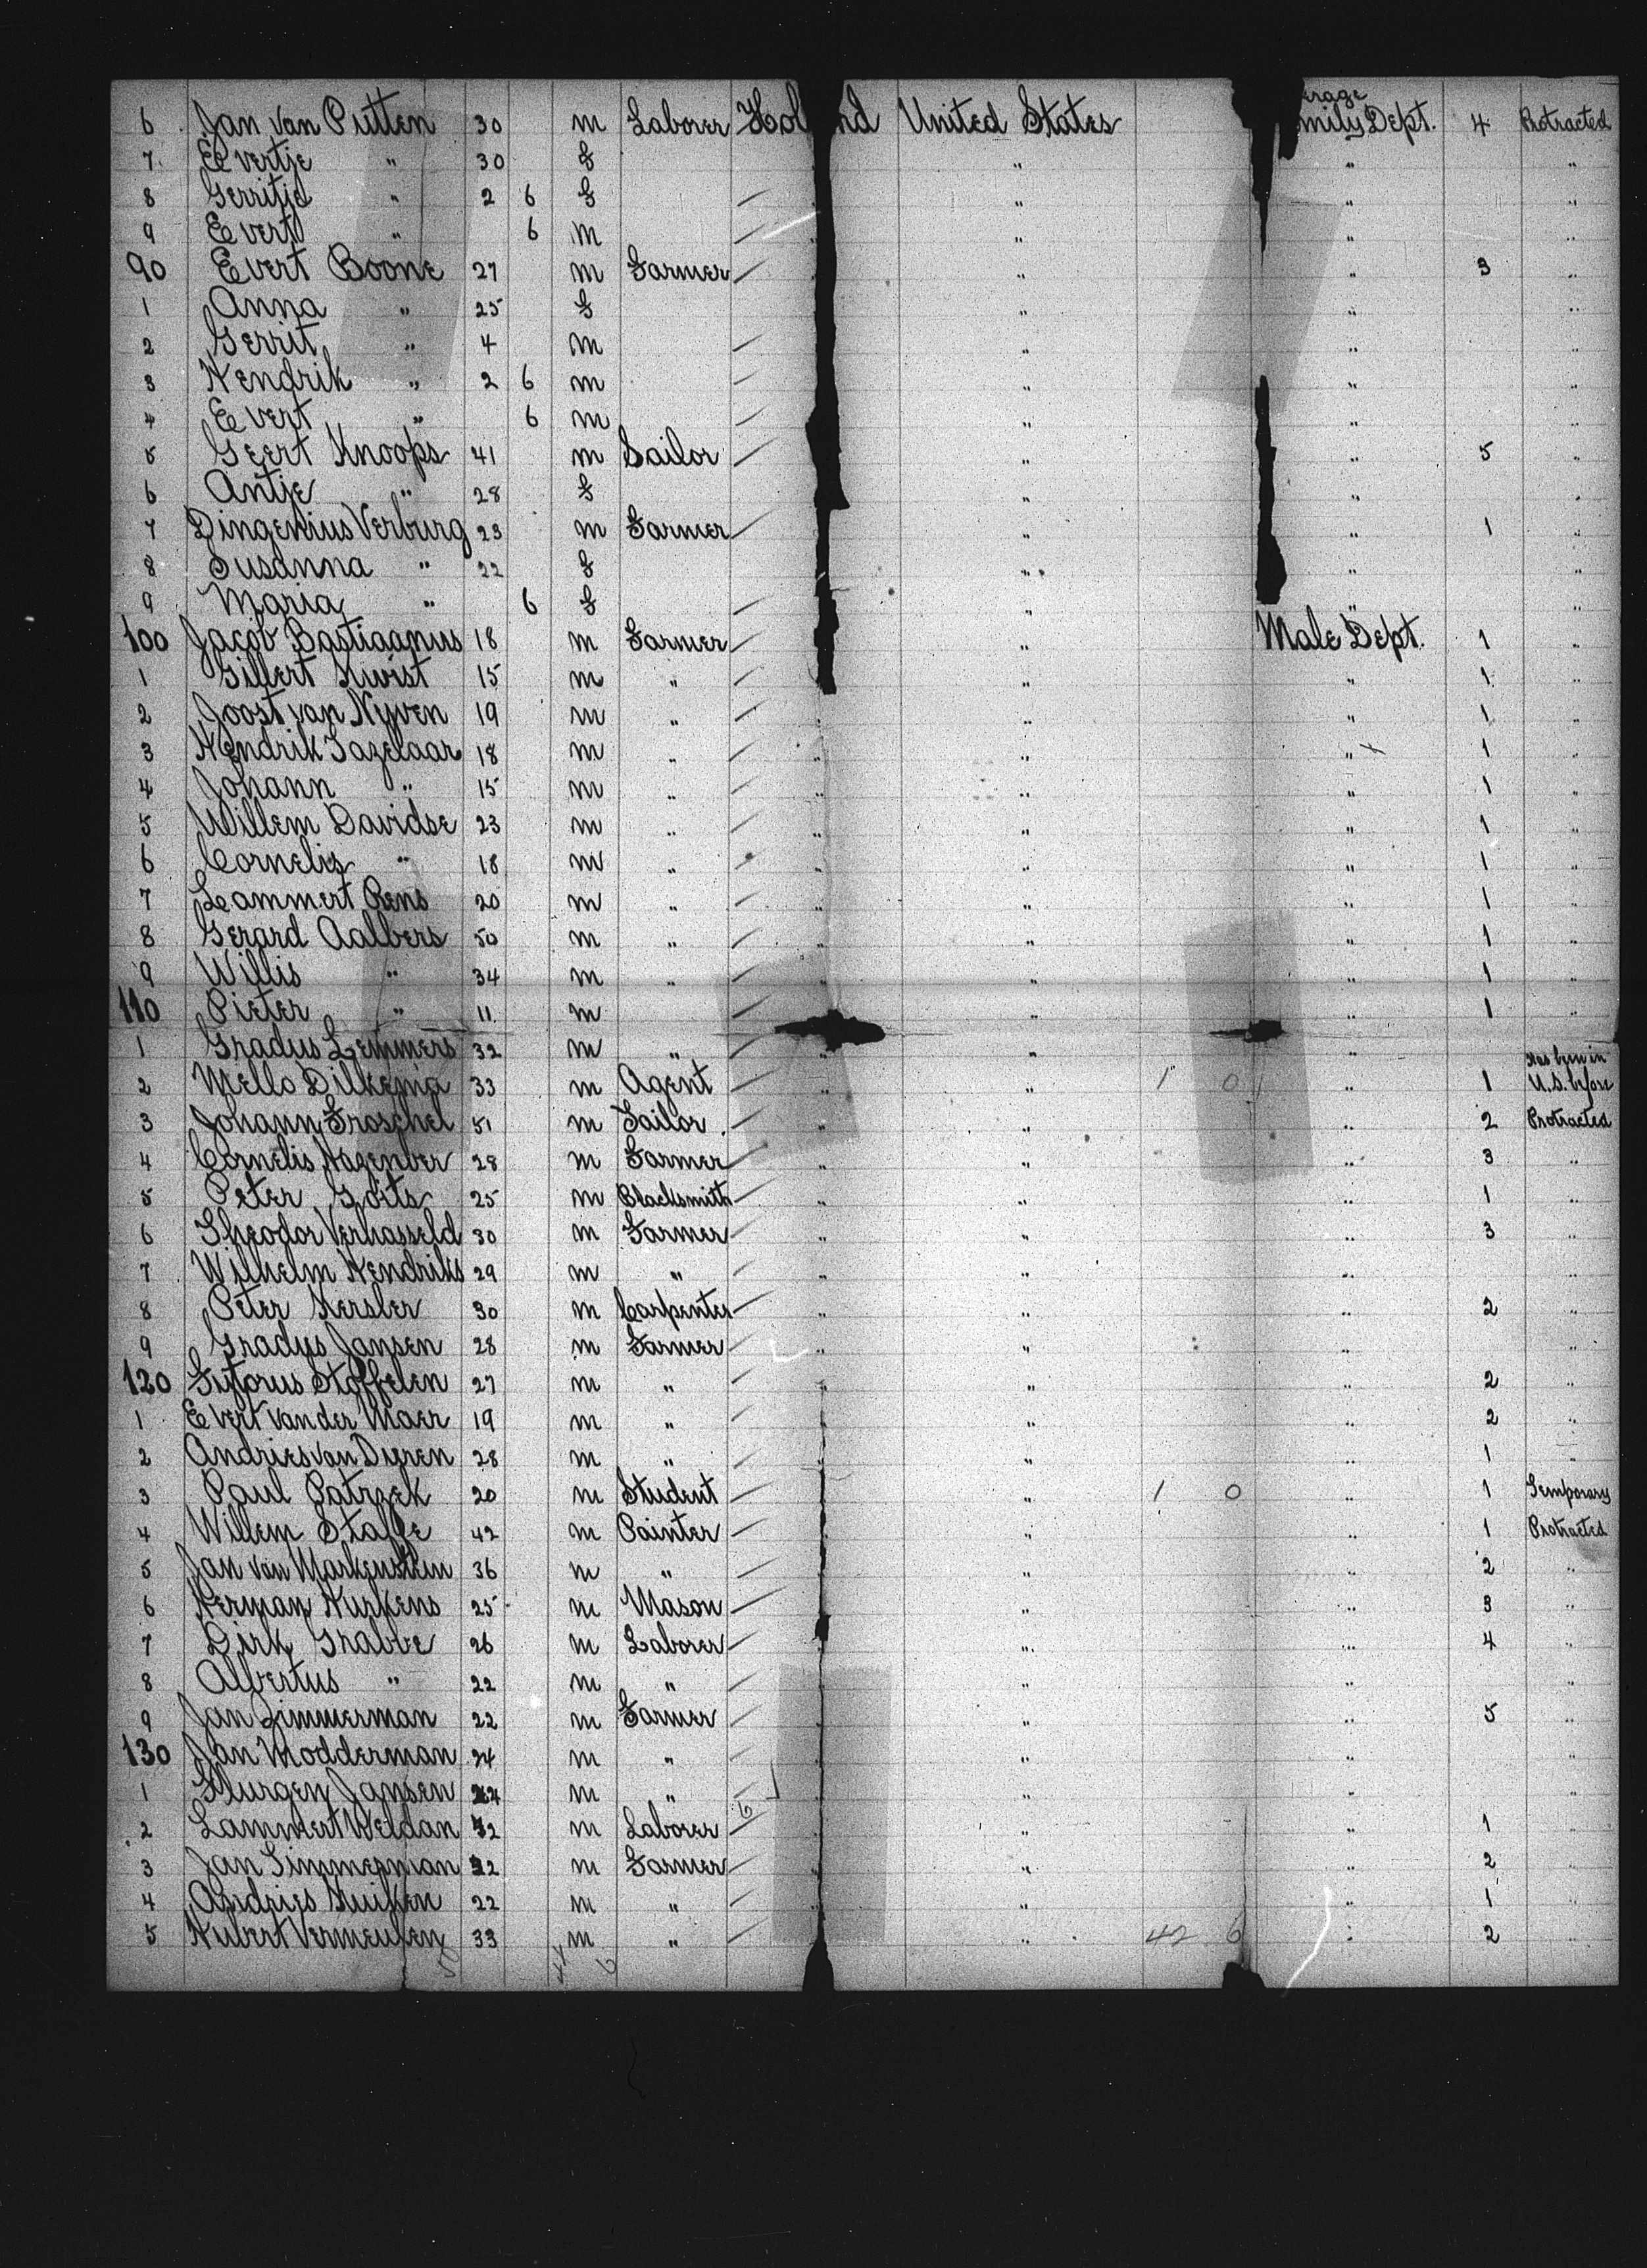 6 Jan van Putten 30 m Laborer Hol nd United States erage mily Dept. 4 Protracted
7 Evertje " 30 f " " "
8 Gerritje " 2 6 f " " "
9 Evert " 6 m " " " "
90 Evert Boone 27 m Farmer " " 3 "
1 Anna " 25 f " " "
2 Gerrit " 4 m " " "
3 Hendrik " 2 6 m " " "
4 Evert " 6 m " " "
5 Geert Knoops 41 m Sailor " " 5 "
6 Antje " 28 f " " "
7 Dingenius Verburg 23 m Farmer " " 1 "
8 Susanna " 22 f " " "
9 Maria " 6 f " " "
100 Jacob Bastiaanus 18 m Farmer " Male Dept. 1 "
1 Gillert Kwist 15 m " " " 1 "
2 Joost van Nyven 19 m " " " " 1 "
3 Hendrik Gazelaar 18 m " " " " 1 "
4 Johann " 15 m " " " " 1 "
5 Willem Davidse 23 m " " " " 1 "
6 Cornelis " 18 m " " " " 1 "
7 Lammert Rens 20 m " " " " 1 "
8 Gerard Aalbers 50 m " " " " 1 "
9 Willis " 34 m " " " " 1 "
110 Pieter " 11 m " " 1 "
1 Gradus Lemmers 32 m " " " "
2 Mello Dilkema 33 m Agent " " 1 0 " 1 Has been in U.S. before
3 Johann Froschel 51 m Tailor " " " 2 Protracted
4 Cornelis Hagenber 28 m Farmer " " " 3 "
5 Peter Goits 25 m Blacksmith " " " 1 "
6 Theodor Verhasseld 30 m Farmer " " " 3 "
7 Wilhelm Hendriks 29 m " " " " "
8 Peter Kersler 30 m Carpenter " " " 2 "
9 Gradus Jansen 28 m Farmer " " " "
120 Stoffelen 27 m " " " " 2 "
1 Evert van der Maer 19 m " " " " 2 "
2 Andries van Duren 28 m " " " 1 "
3 Paul Patrzek 20 m Student " 1 0 " 1 Temporary
4 Willem Stalpe 42 m Painter " " 1 Protracted
5 Jan van Markenstein 36 m " " " 2 "
6 Herman Kurkens 25 m Mason " " 3 "
7 Dirk Grabbe 26 m Laborer " " 4 "
8 Albertus " 22 m " " " "
9 Jan Zimmerman 22 m Farmer " " 5 "
130 Jan Modderman 24 m " " " "
1 Jansen 24 m " " " "
2 Lammert Weldan 42 m Laborer 6 " " 1 "
3 Jan Timmerman 22 m Farmer " " 2 "
4 Andries Kuiken 22 m " " " 1 "
5 Hubert Vermeulen 33 m " " 42 6 " 2 "
50 44 6